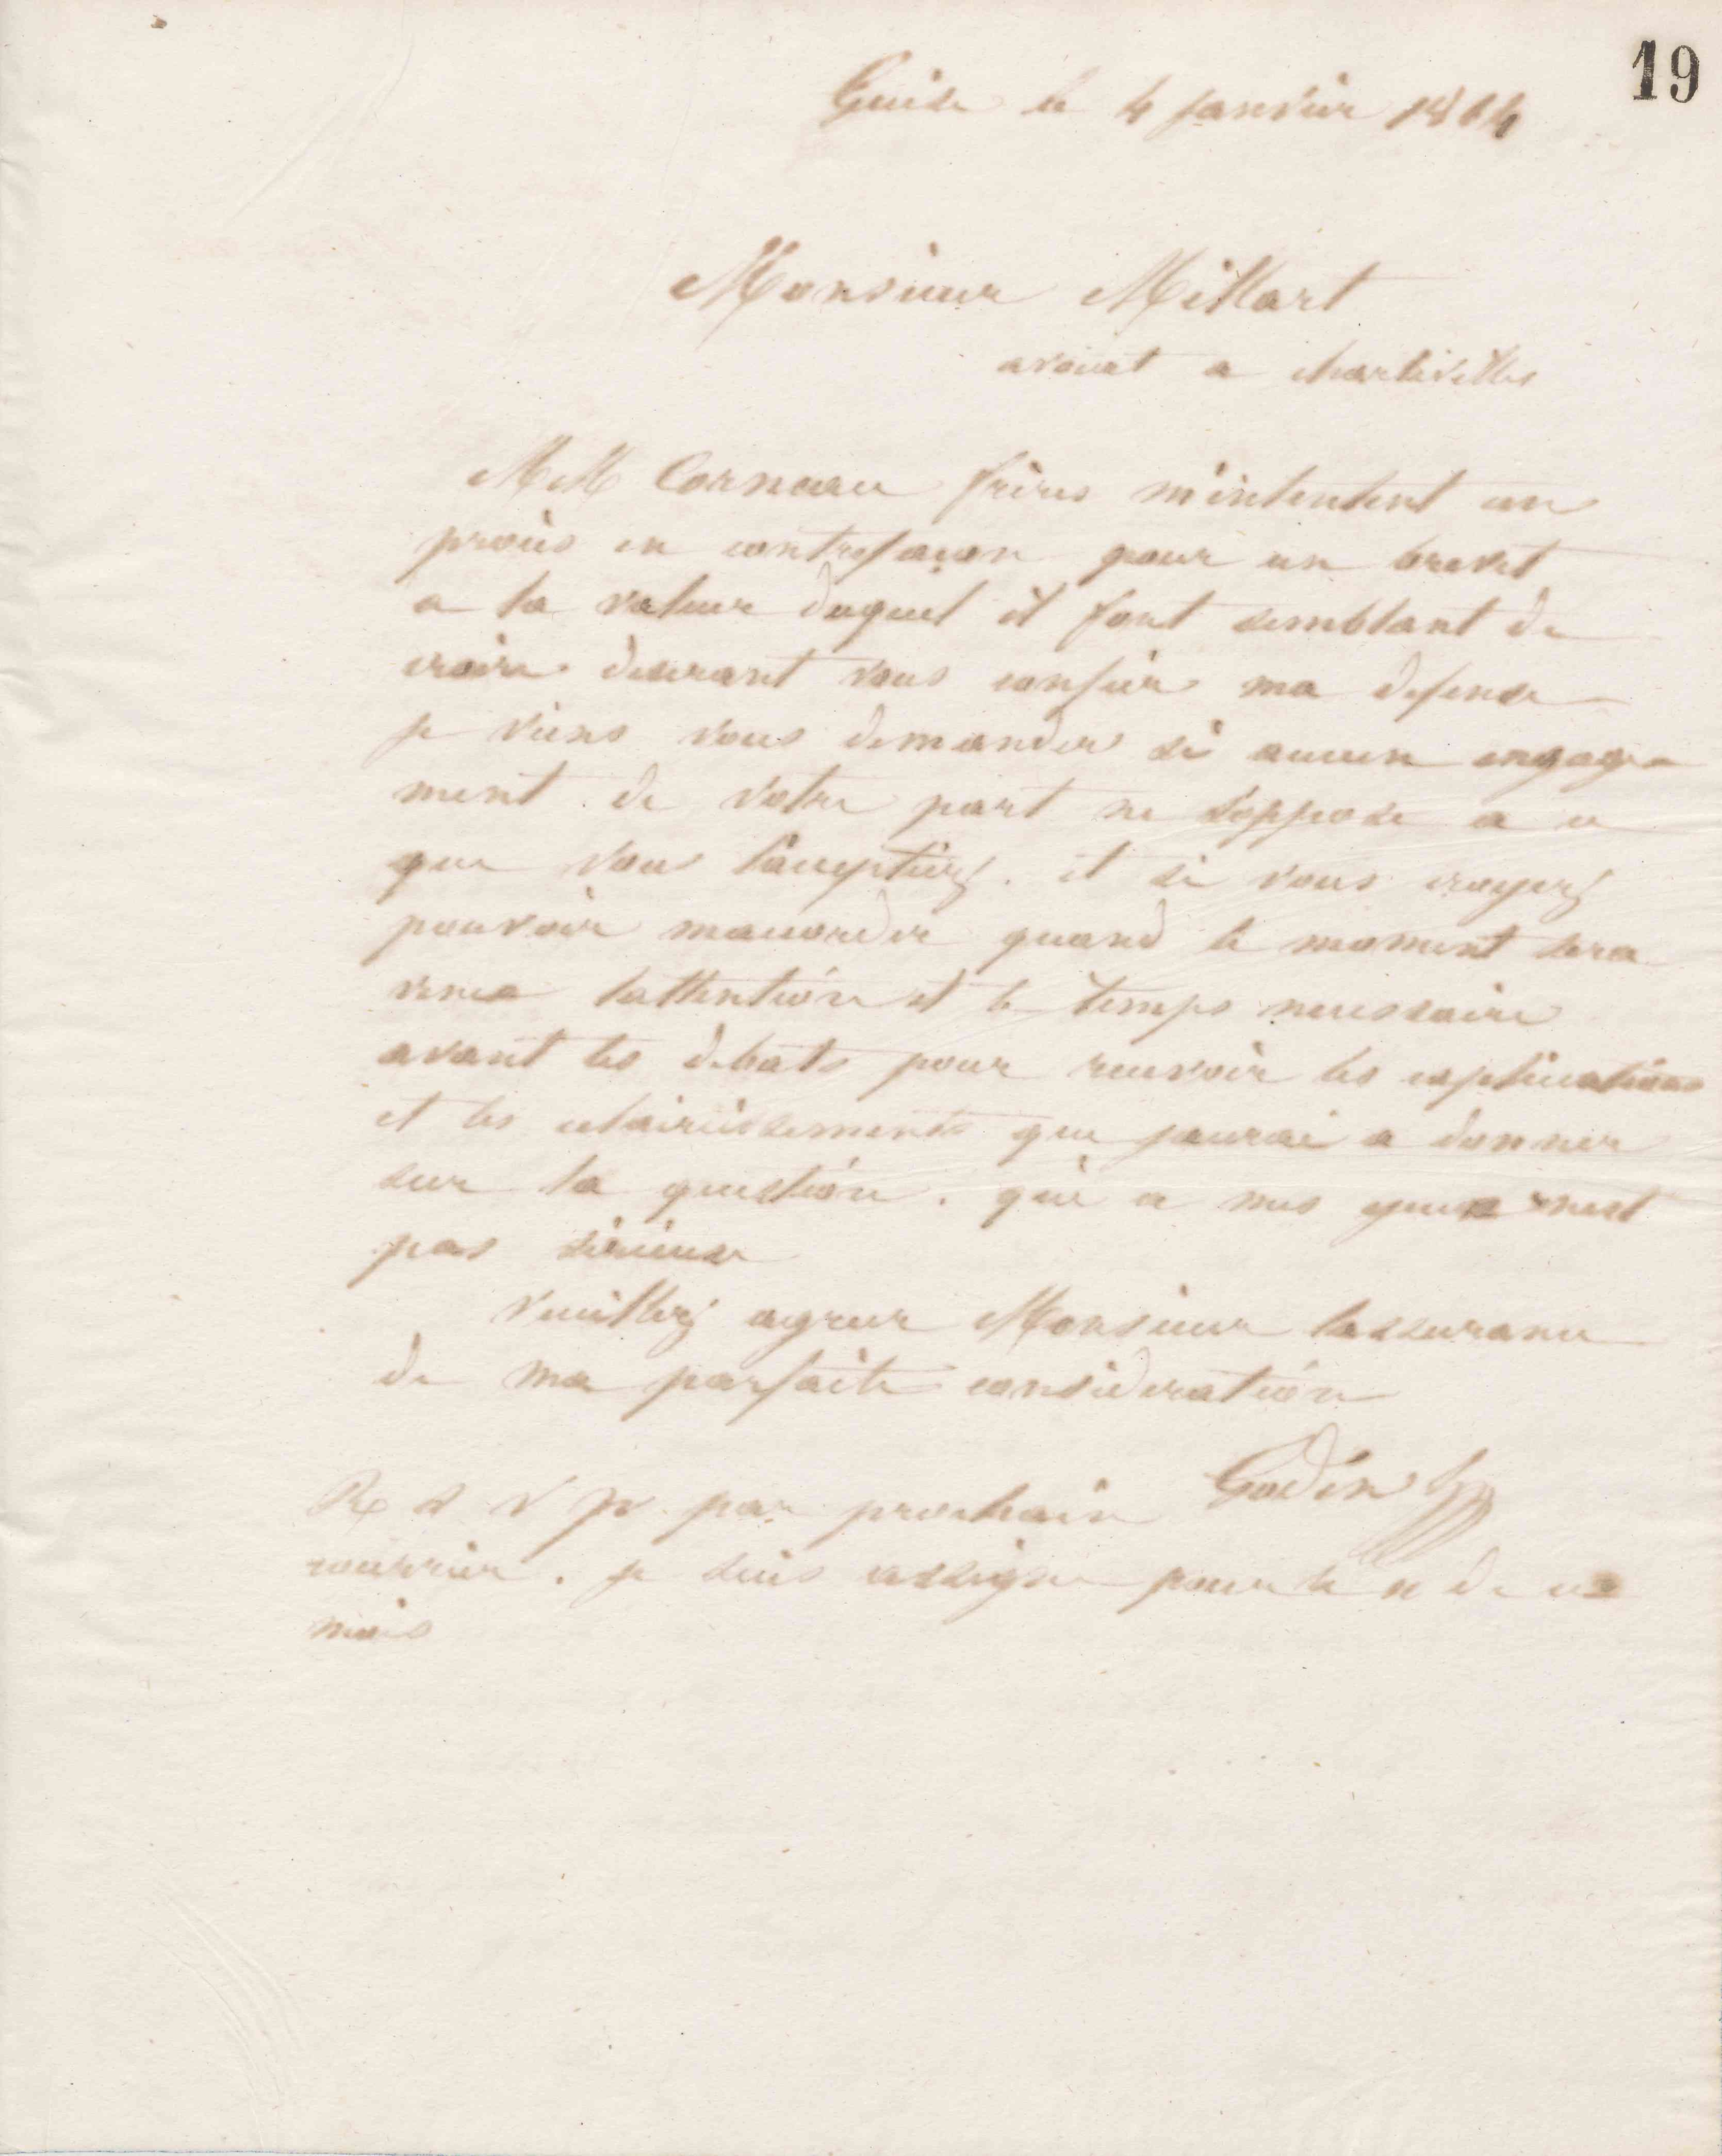 19
Guise le 4 janvier 1864
Monsieur Millart
avouat a charleville
MM Corneau frères m'intentent un
procès en contrefaçon pour un brevet
a la valeur duquel il font semblant de
croire desirant vous confier ma defense
je viens vous demander si aucun engage
ment de votre part ne soppose a ce
que vous l'acceptiez. et si vous croyez
pouvoir maccorder quand le moment sera
venu lattention et le temps necessaire
avant les debats pour recevoir les explications
et les eclaircissements que jaurai a donner
sur la question. qui a mes yeux nest
pas sérieuse
Veuillez agreer Monsieur lassurance
de ma parfaite consideration
Godin
R S V P par prochain
courrier. je suis assigne pour le de ce
mois